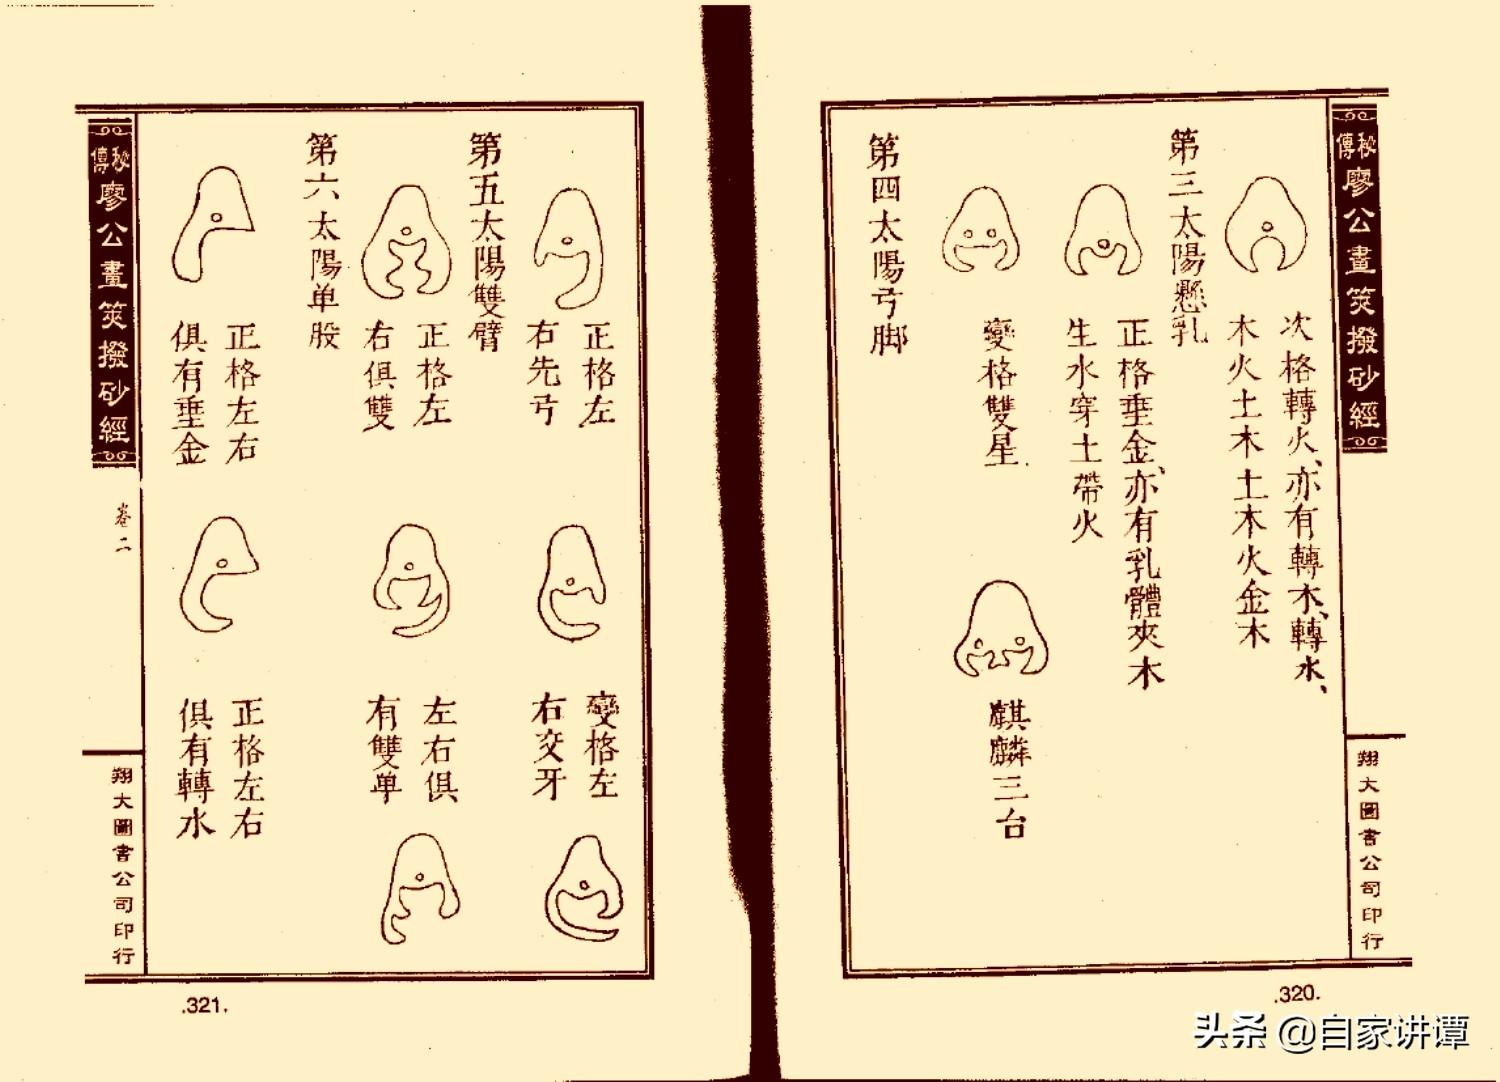 秘傳廖公畫筴撥砂經
次格轉火、亦有轉木、轉水、
木火土木土木火金木
第三太陽懸乳
正格垂金、亦有乳體夾木
生水穿土帶火
變格雙星
麒麟三台
第四太陽弓脚
翔大圖書公司印行
.320.
正格左
右先弓
變格左
右交牙
第五太陽雙臂
正格左
右俱雙
左右俱
有雙单
第六太陽单股
正格左右
俱有垂金
正格左右
俱有轉水
秘傳廖公畫筴撥砂經
卷二
翔大圖書公司印行
.321.
头条 @自家讲谭